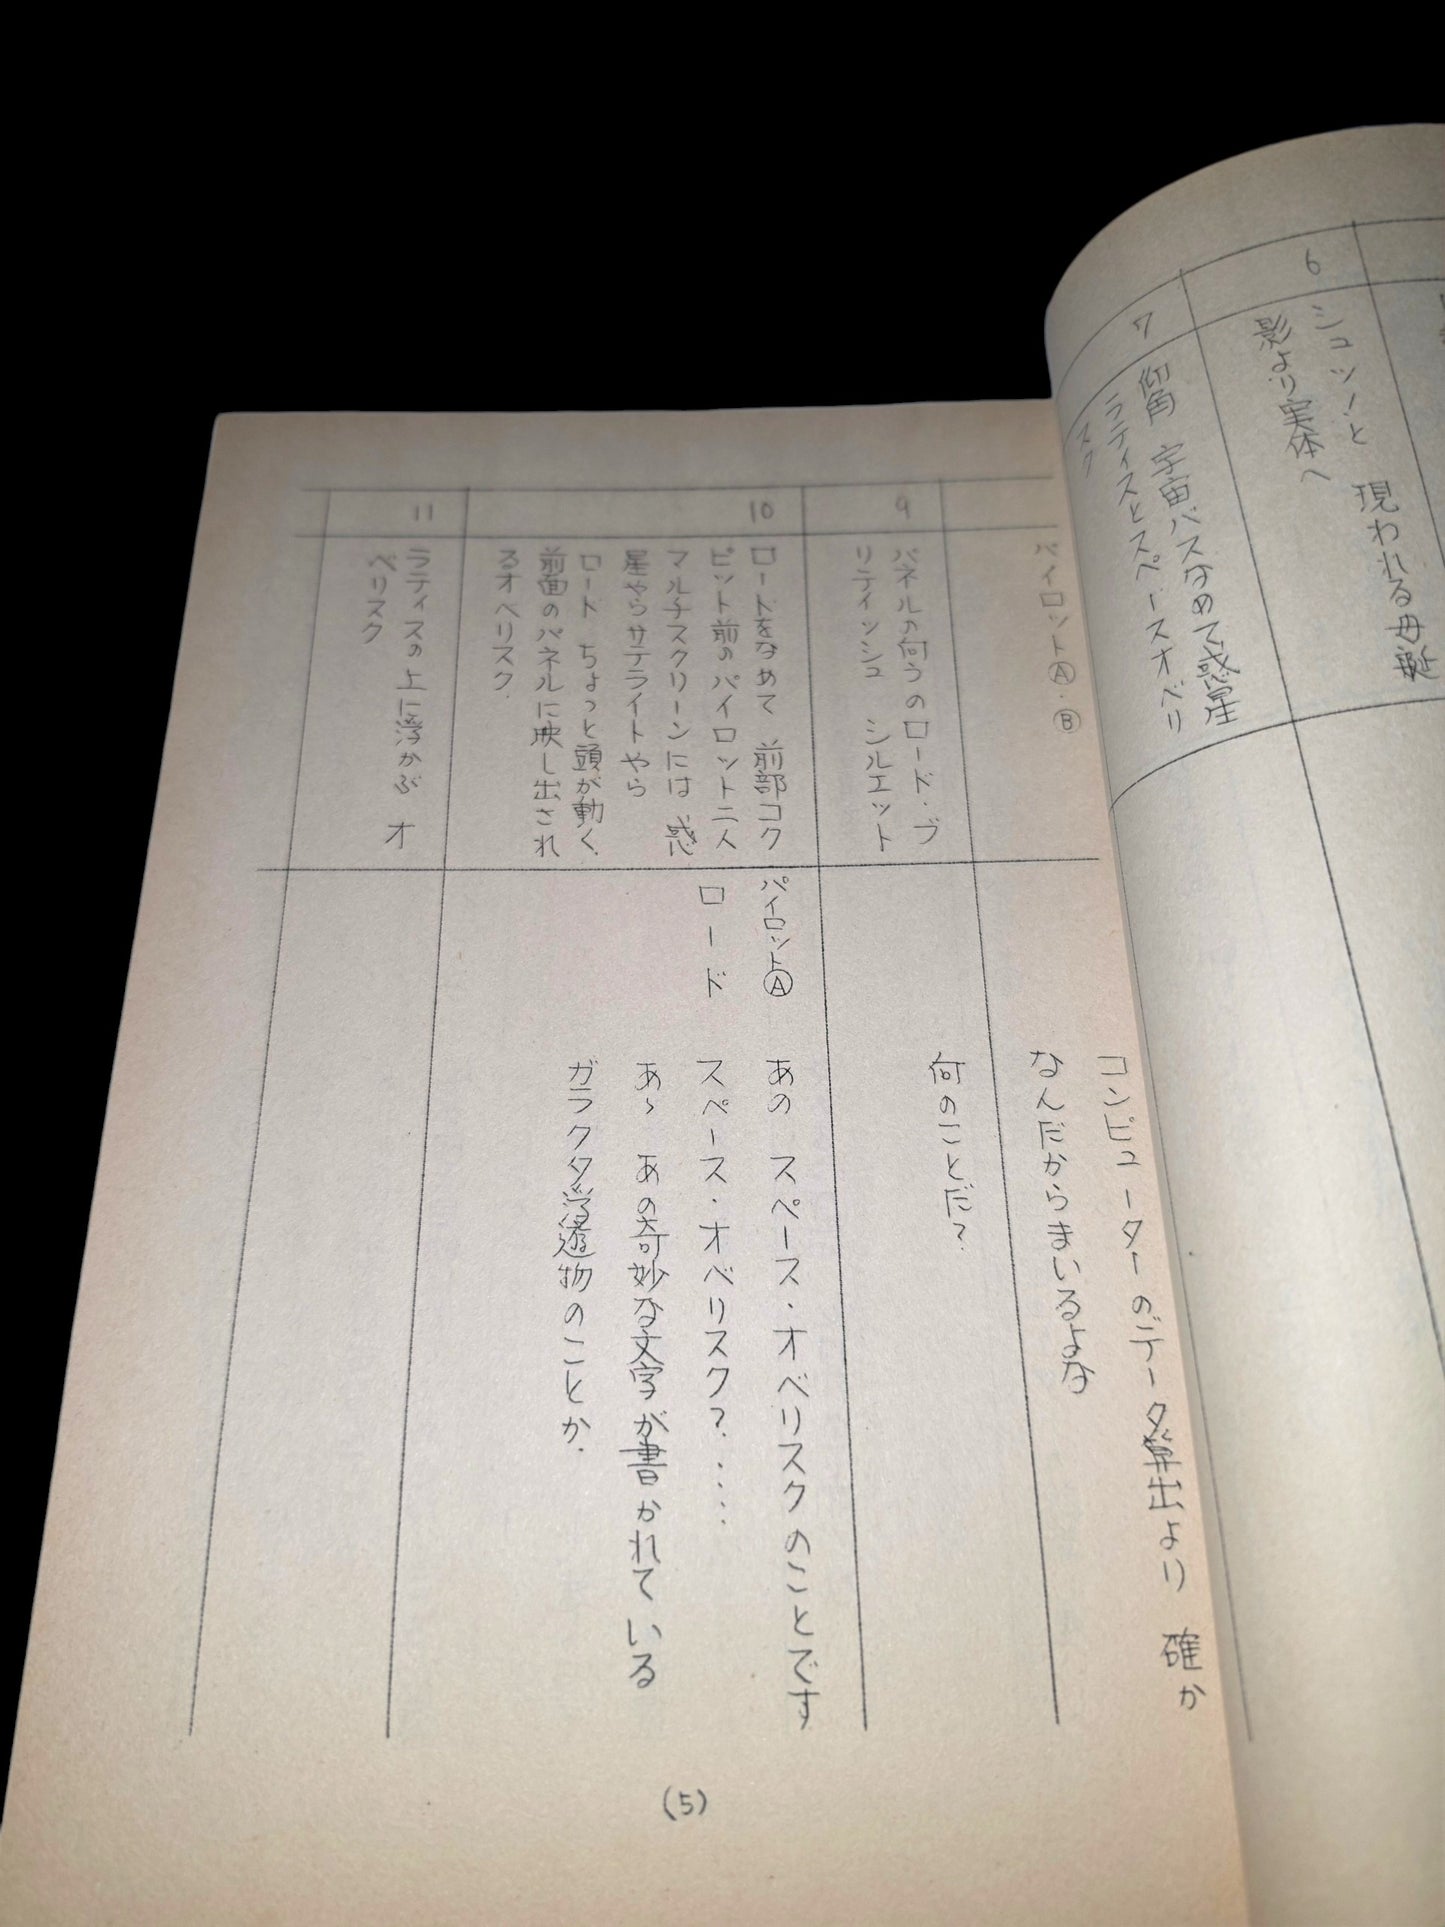 6
シュッ!と 現われる母艇
影より実体へ
7
仰角 宇宙バスなめて惑星
ラティスとスペースオベリ
スク
パイロットⒶ・Ⓑ
コンピューターのデータ算出より 確か
なんだからまいるよな
9
パネルの向うのロード・ブ
リティッシュ シルエット
何のことだ?
10
ロードをなめて 前部コク
ピット前のパイロット二人
マルチスクリーンには、惑
星やらサテライトやら
ロード ちょっと頭が動く、
前面のパネルに映し出され
るオベリスク.
パイロットⒶ あの スペース・オベリスクのことです
ロード スペース・オベリスク?‥‥
あゝ あの奇妙な文字が書かれている
ガラクタ浮遊物のことか.
11
ラティスの上に浮かぶ オ
ベリスク
(5)